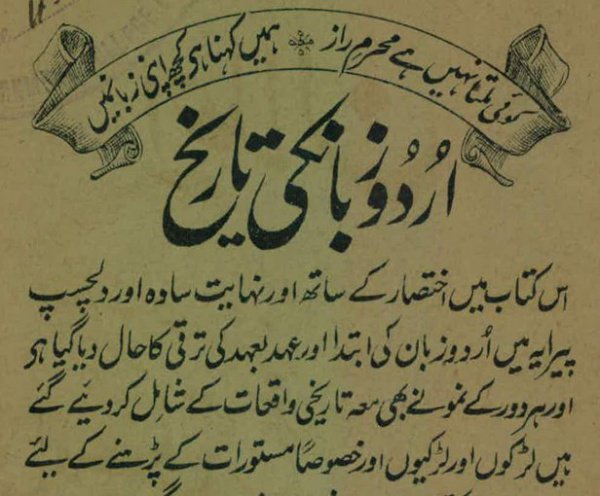 کوئی ملتا نہیں ہے محرمِ راز ہمیں کہنا ہی کچھ اپنی زبانمیں
اُردو زبانکی تاریخ
اس کتاب میں اختصار کے ساتھ اور نہایت سادہ اور دلچسپ
پیرایہ میں اُردو زبان کی ابتدا اور عہد بعہد کی ترقی کا حال دیا گیا ہی
اور ہر دور کے نمونے بھی معہ تاریخی واقعات کے شامل کر دیئے گئے
ہیں لڑکوں اور لڑکیوں اور خصوصاً مستورات کے پڑہنے کے لیئے